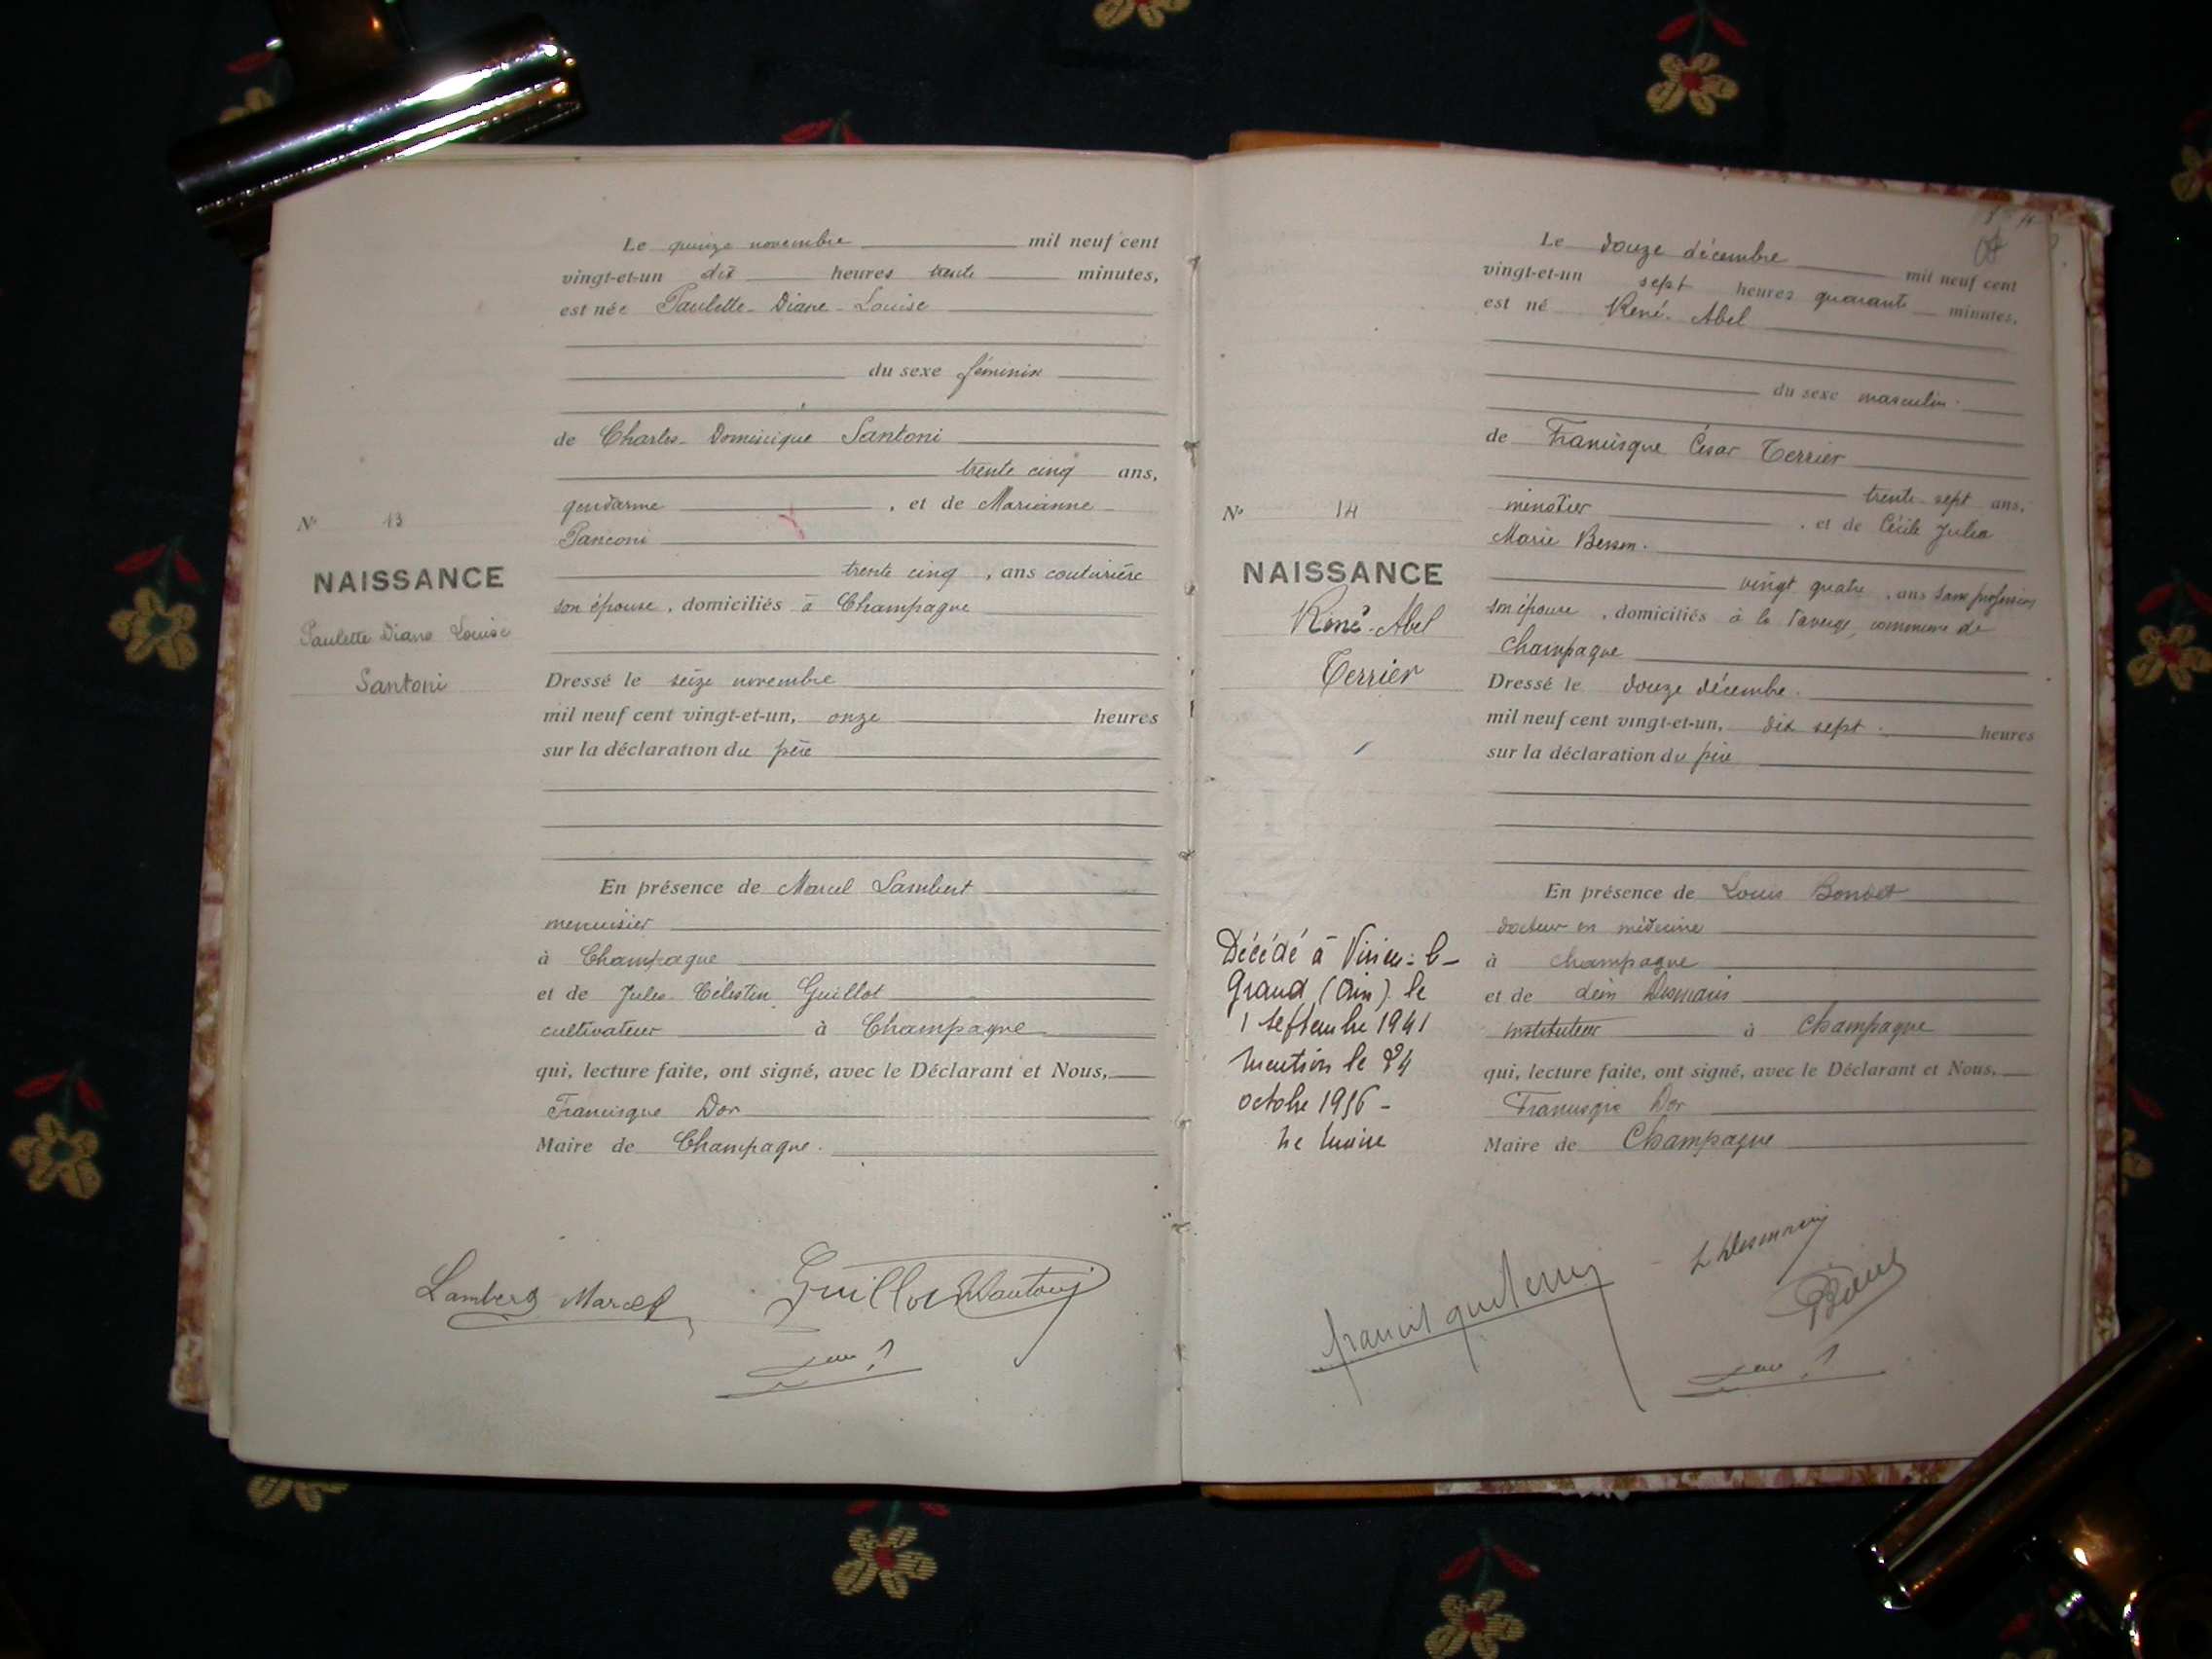 Le quinze novembre mil neuf cent
vingt-et-un dix heures trente minutes,
est née Paulette-Diane-Louise
du sexe féminin
de Charles-Dominique Santoni
trente cinq ans,
gendarme, et de Marianne
Panconi
trente cinq, ans couturière
son épouse, domiciliés à Champagne
N° 13
NAISSANCE
Paulette Diane Louise
Santoni
Dressé le seize novembre
mil neuf cent vingt-et-un, onze heures
sur la déclaration du père
En présence de Marcel Lambert
menuisier
à Champagne
et de Jules-Célestin Guillot
cultivateur à Champagne
qui, lecture faite, ont signé, avec le Déclarant et Nous,
Francisque Dor
Maire de Champagne.
Lambert Marcel
Guillot Santoni
Le douze décembre mil neuf cent
vingt-et-un sept heures quarante minutes,
est né René-Abel
du sexe masculin.
de Francisque César Terrier
trente-sept ans,
minotier, et de Cécile Julia
Marie
vingt quatre, ans sans profession
son épouse, domiciliés à la commune de
Champagne
N° 14
NAISSANCE
René-Abel
Terrier
Dressé le douze décembre.
mil neuf cent vingt-et-un, dix sept. heures
sur la déclaration du père
En présence de Louis Bonnet
docteur en médecine
à Champagne
et de Désmaris
instituteur à Champagne
qui, lecture faite, ont signé, avec le Déclarant et Nous,
Francisque Dor
Maire de Champagne
Décédé à Virieu-le-
Grand (Ain) le
1 septembre 1941
Mention le 24
octobre 1956 -
Le Maire